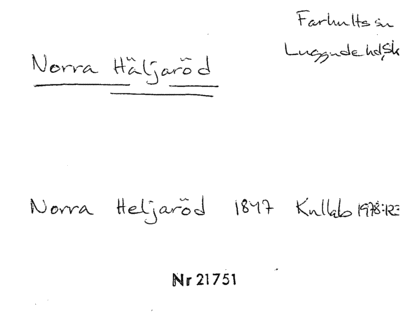 Farhults sn
Luggude hd, Sk
Norra Häljaröd
Norra Heljaröd 1847 Kullab 1978:123
Nr 21751